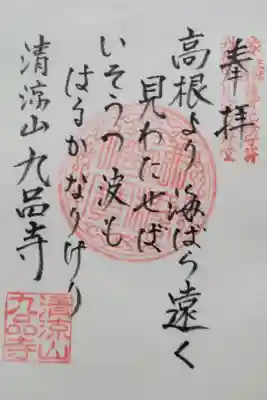 奉拝
高根より 海ばら遠く
見わたせば
いそうつ波も
はるかなりけり
清涼山 九品寺
清涼山
九品寺